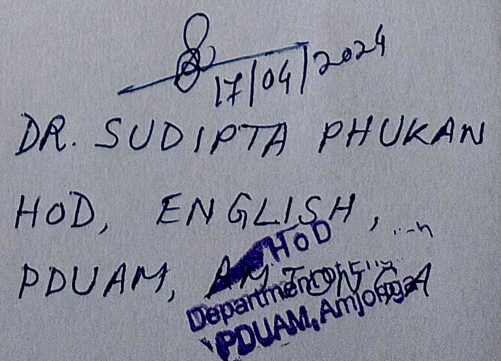 17/04/2024
DR. SUDIPTA PHUKAN
HOD, ENGLISH,
PDUAM, AMJONGA
HOD
Department of
PDUAM, Amjonga